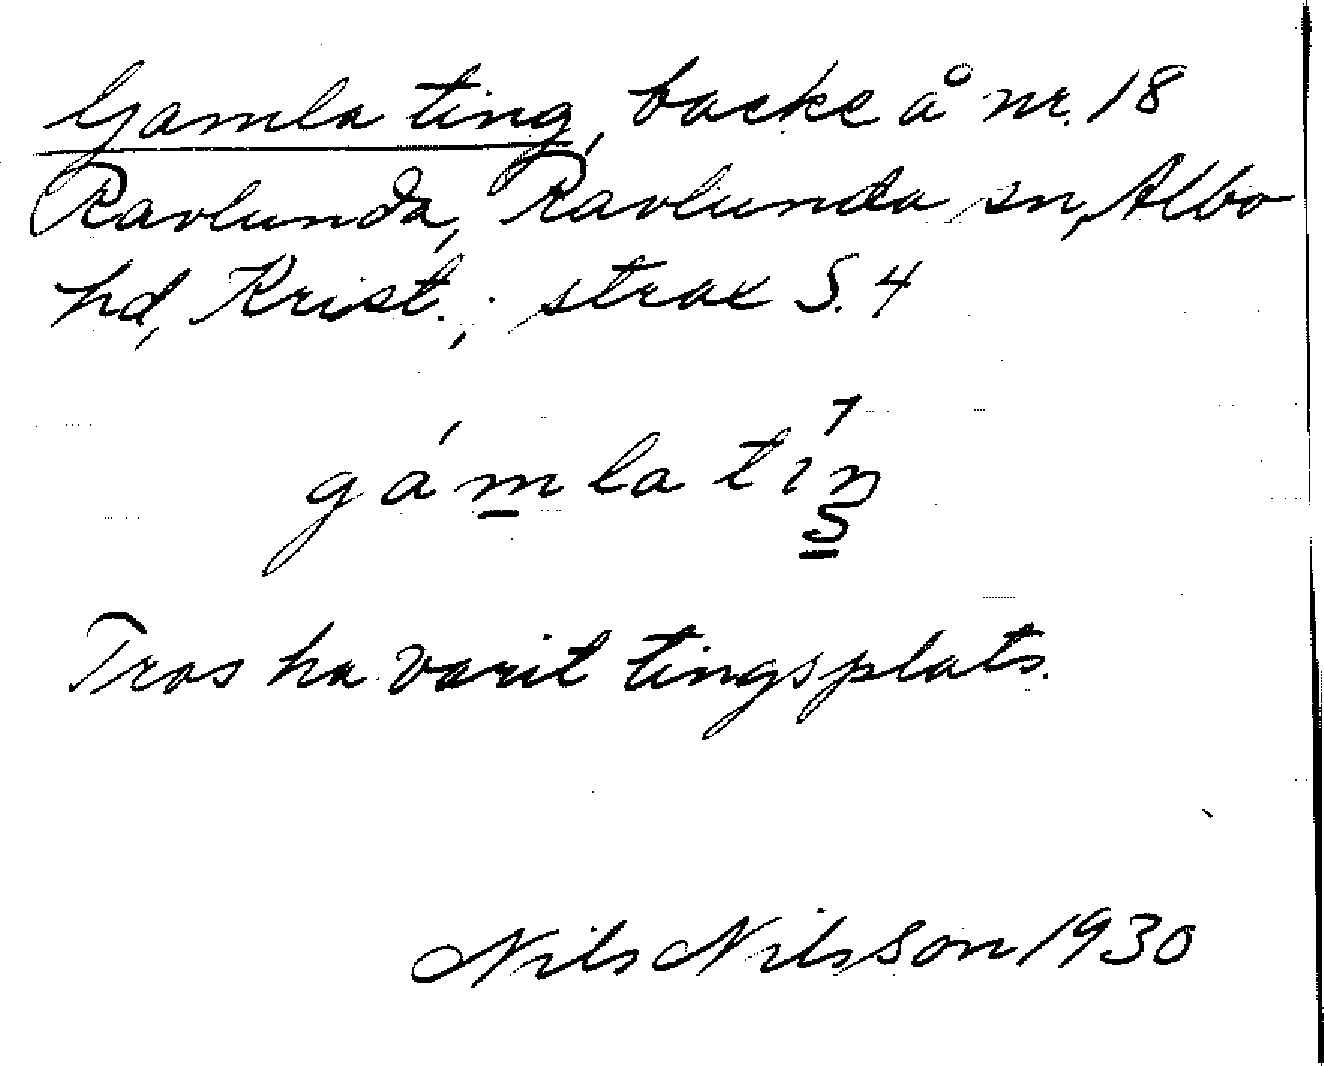 Gamla ting, backe å nr. 18
Ravlunda, Ravlunda sn, Albo
hd, Krist.; strax S. 4
gámla tíŋ
Tros ha varit tingsplats.
Nils Nilsson 1930